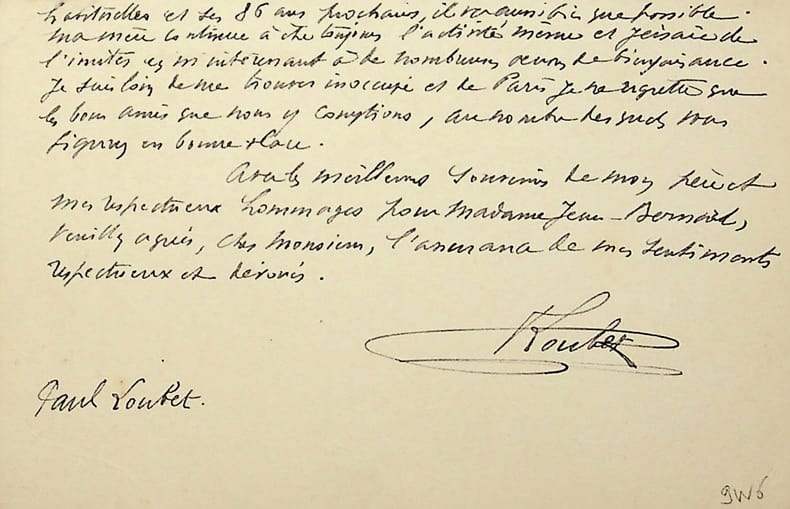 habituelles et ses 86 ans prochains, il va aussi bien que possible.
ma mère continue à être toujours l'activité même et j'essaie de
l'imiter en m'intéressant à de nombreuses œuvres de bienfaisance.
Je suis loin de me trouver inoccupé et de Paris je ne regrette que
les bons amis que nous y comptions, au nombre desquels vous
figurez en bonne place.
Avec les meilleurs souvenirs de mon père et
mes respectueux hommages pour Madame Jean-Bernard,
veuillez agréer, cher Monsieur, l'assurance de mes sentiments
respectueux et dévoués.
Loubet
Paul Loubet.
9W6